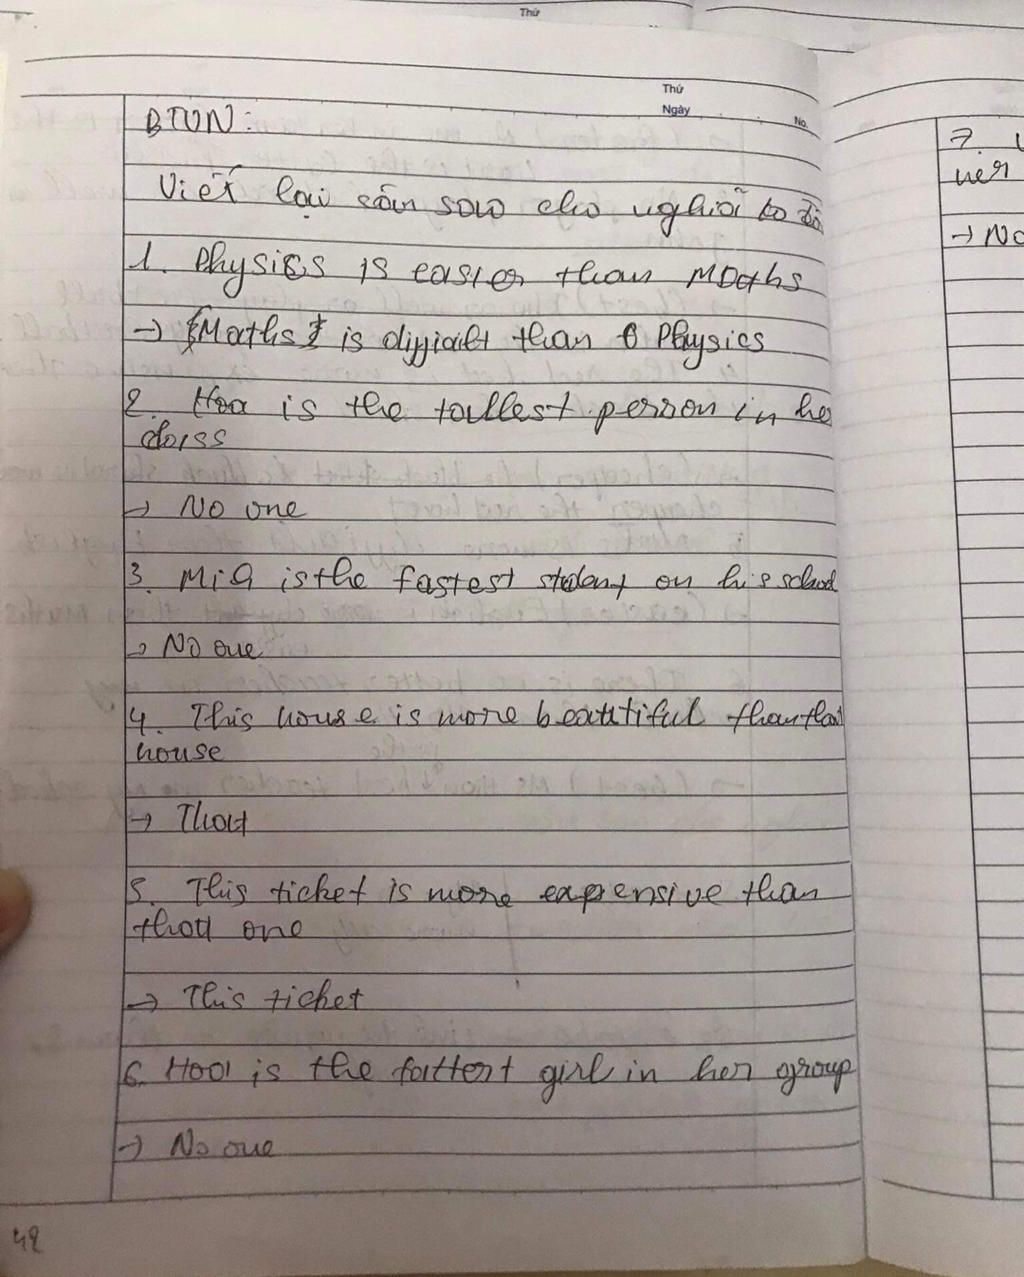 Thứ
Thứ
Ngày
No.
BTVN:
Viết lại câu sao cho nghĩa ko đổi
1. Physics is easier than Maths
→ Maths is difficult than Physics
2. Hoa is the tallest person in her
class
→ No one
3. Mia is the fastest student on his school
→ No one
4. This house is more beautiful than that
house
→ That
5. This ticket is more expensive than
that one
→ This ticket
6. Hoa is the fattest girl in her group
→ No one
42
7.
→ No